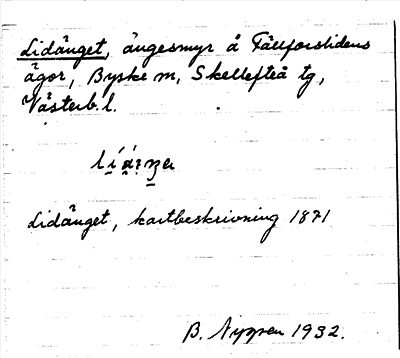 Lidänget, ängesmyr å Fällforslidens
ägor, Byske sn, Skellefteå tg,
Västerb. l.
Lidänget, kartbeskrivning 1871
B. Nyman 1932.